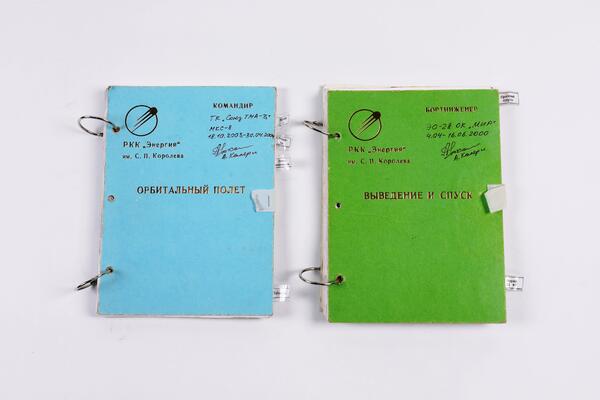 КОМАНДИР
ТК „Союз ТМА-3"
МКС-8
18.10.2003-30.04.2004
А. Калери
РКК „Энергия"
им. С. П. Королева
ОРБИТАЛЬНЫЙ ПОЛЕТ
БОРТИНЖЕНЕР
ЭО-28 ОК „Мир"
4.04-16.06.2000
А. Калери
РКК „Энергия"
им. С. П. Королева
ВЫВЕДЕНИЕ И СПУСК